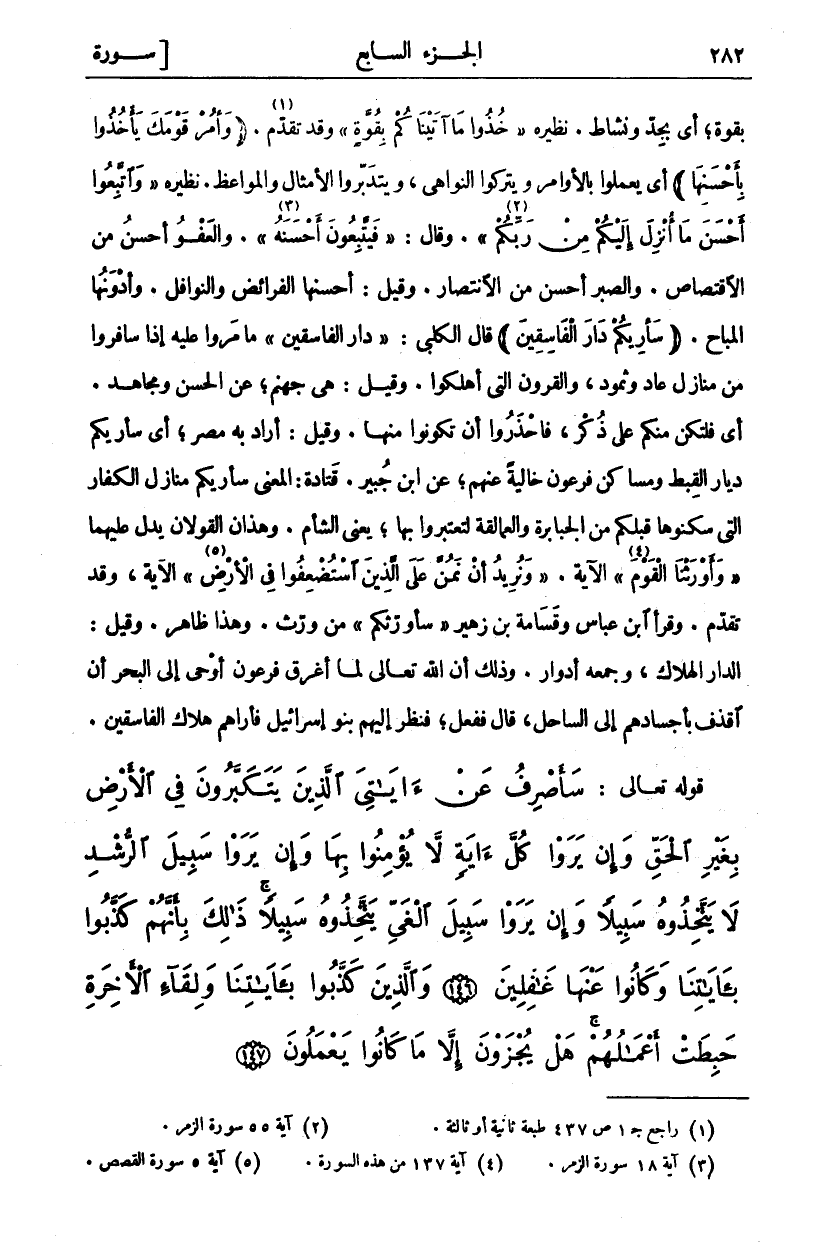 ٢٨٢ الجـزء السـابع [ســورة
بقوة؛ أى بجدّ ونشاط . نظيره « خُذُوا مَا آتَيْنَا كُمْ بِقُوَّةٍ » (١) وقد تقدّم . ﴿ وَأْمُرْ قَوْمَكَ يَأْخُذُوا
بِأَحْسَنِهَا ﴾ أى يعملوا بالأوامر ويتركوا النواهى ، ويتدبّروا الأمثال والمواعظ . نظيره « وَٱتَّبِعُوا
أَحْسَنَ مَا أُنْزِلَ إِلَيْكُمْ مِنْ رَبِّكُمْ » (٢) . وقال : « فَيَتَّبِعُونَ أَحْسَنَهُ » (٣) . والعَفْـو أحسنُ من
الٱقتصاص . والصبر أحسن من الٱنتصار . وقيل : أحسنها الفرائض والنوافل . وأدْوَنُها
المباح . ﴿ سَأُرِيكُمْ دَارَ الْفَاسِقِينَ ﴾ قال الكلبى : « دار الفاسقين » ما مَروا عليه إذا سافروا
من منازل عاد وثمود ، والقرون التى أهلكوا . وقيـل : هى جهنم؛ عن الحسن ومجاهـد .
أى فلتكن منكم على ذُكْر ، فاحْذَرُوا أن تكونوا منهـا . وقيل : أراد به مصر ؛ أى سأريكم
ديار القِبط ومساكن فرعون خاليةً عنهم؛ عن ابن جُبير . قَتادة: المعنى سأريكم منازل الكفار
التى سكنوها قبلكم من الجبابرة والعمالقة لتعتبروا بها ؛ يعنى الشأم . وهذان القولان يدل عليهما
« وَأَوْرَثْنَا الْقَوْمَ » (٤) الآية . « وَنُرِيدُ أَنْ نَمُنَّ عَلَى الَّذِينَ ٱسْتُضْعِفُوا فِى الْأَرْضِ » (٥) الآية ، وقد
تقدّم . وقرأ ٱبن عباس وقَسَامة بن زهير « سأورّثكم » من ورّث . وهذا ظاهر . وقيل :
الدار الهلاك ، وجمعه أدوار . وذلك أن الله تعـالى لمـا أغرق فرعون أوْحى إلى البحر أن
ٱقذف بأجسادهم إلى الساحل، قال ففعل؛ فنظر إليهم بنو إسرائيل فأراهم هلاك الفاسقين .
قوله تعـالى : سَأَصْرِفُ عَنْ ءَايَـٰتِىَ ٱلَّذِينَ يَتَكَبَّرُونَ فِى ٱلْأَرْضِ
بِغَيْرِ ٱلْحَقِّ وَإِن يَرَوْا كُلَّ ءَايَةٍ لَّا يُؤْمِنُوا بِهَا وَإِن يَرَوْا سَبِيلَ ٱلرُّشْـدِ
لَا يَتَّخِذُوهُ سَبِيلًا وَإِن يَرَوْا سَبِيلَ ٱلْغَىِّ يَتَّخِذُوهُ سَبِيلًا ۚ ذَٰلِكَ بِأَنَّهُمْ كَذَّبُوا
بِـَٔايَـٰتِنَا وَكَانُوا عَنْهَا غَـٰفِلِينَ ١٤٦ وَٱلَّذِينَ كَذَّبُوا بِـَٔايَـٰتِنَا وَلِقَآءِ ٱلْأَخِرَةِ
حَبِطَتْ أَعْمَـٰلُهُمْ ۚ هَلْ يُجْزَوْنَ إِلَّا مَا كَانُوا يَعْمَلُونَ ١٤٧
(١) راجع جـ ١ ص ٤٣٧ طبعة ثانية أو ثالثة . (٢) آية ٥٥ سورة الزمر .
(٣) آية ١٨ سورة الزمر . (٤) آية ١٣٧ من هذه السورة . (٥) آية ٥ سورة القصص .